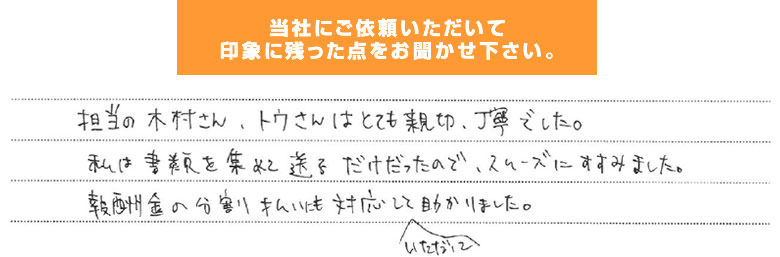 当社にご依頼いただいて
印象に残った点をお聞かせ下さい。
担当の木村さん、トウさんはとても親切、丁寧でした。
私は書類を集めて送るだけだったので、スムーズにすすみました。
報酬金の分割払いにも対応して助かりました。
いただいて